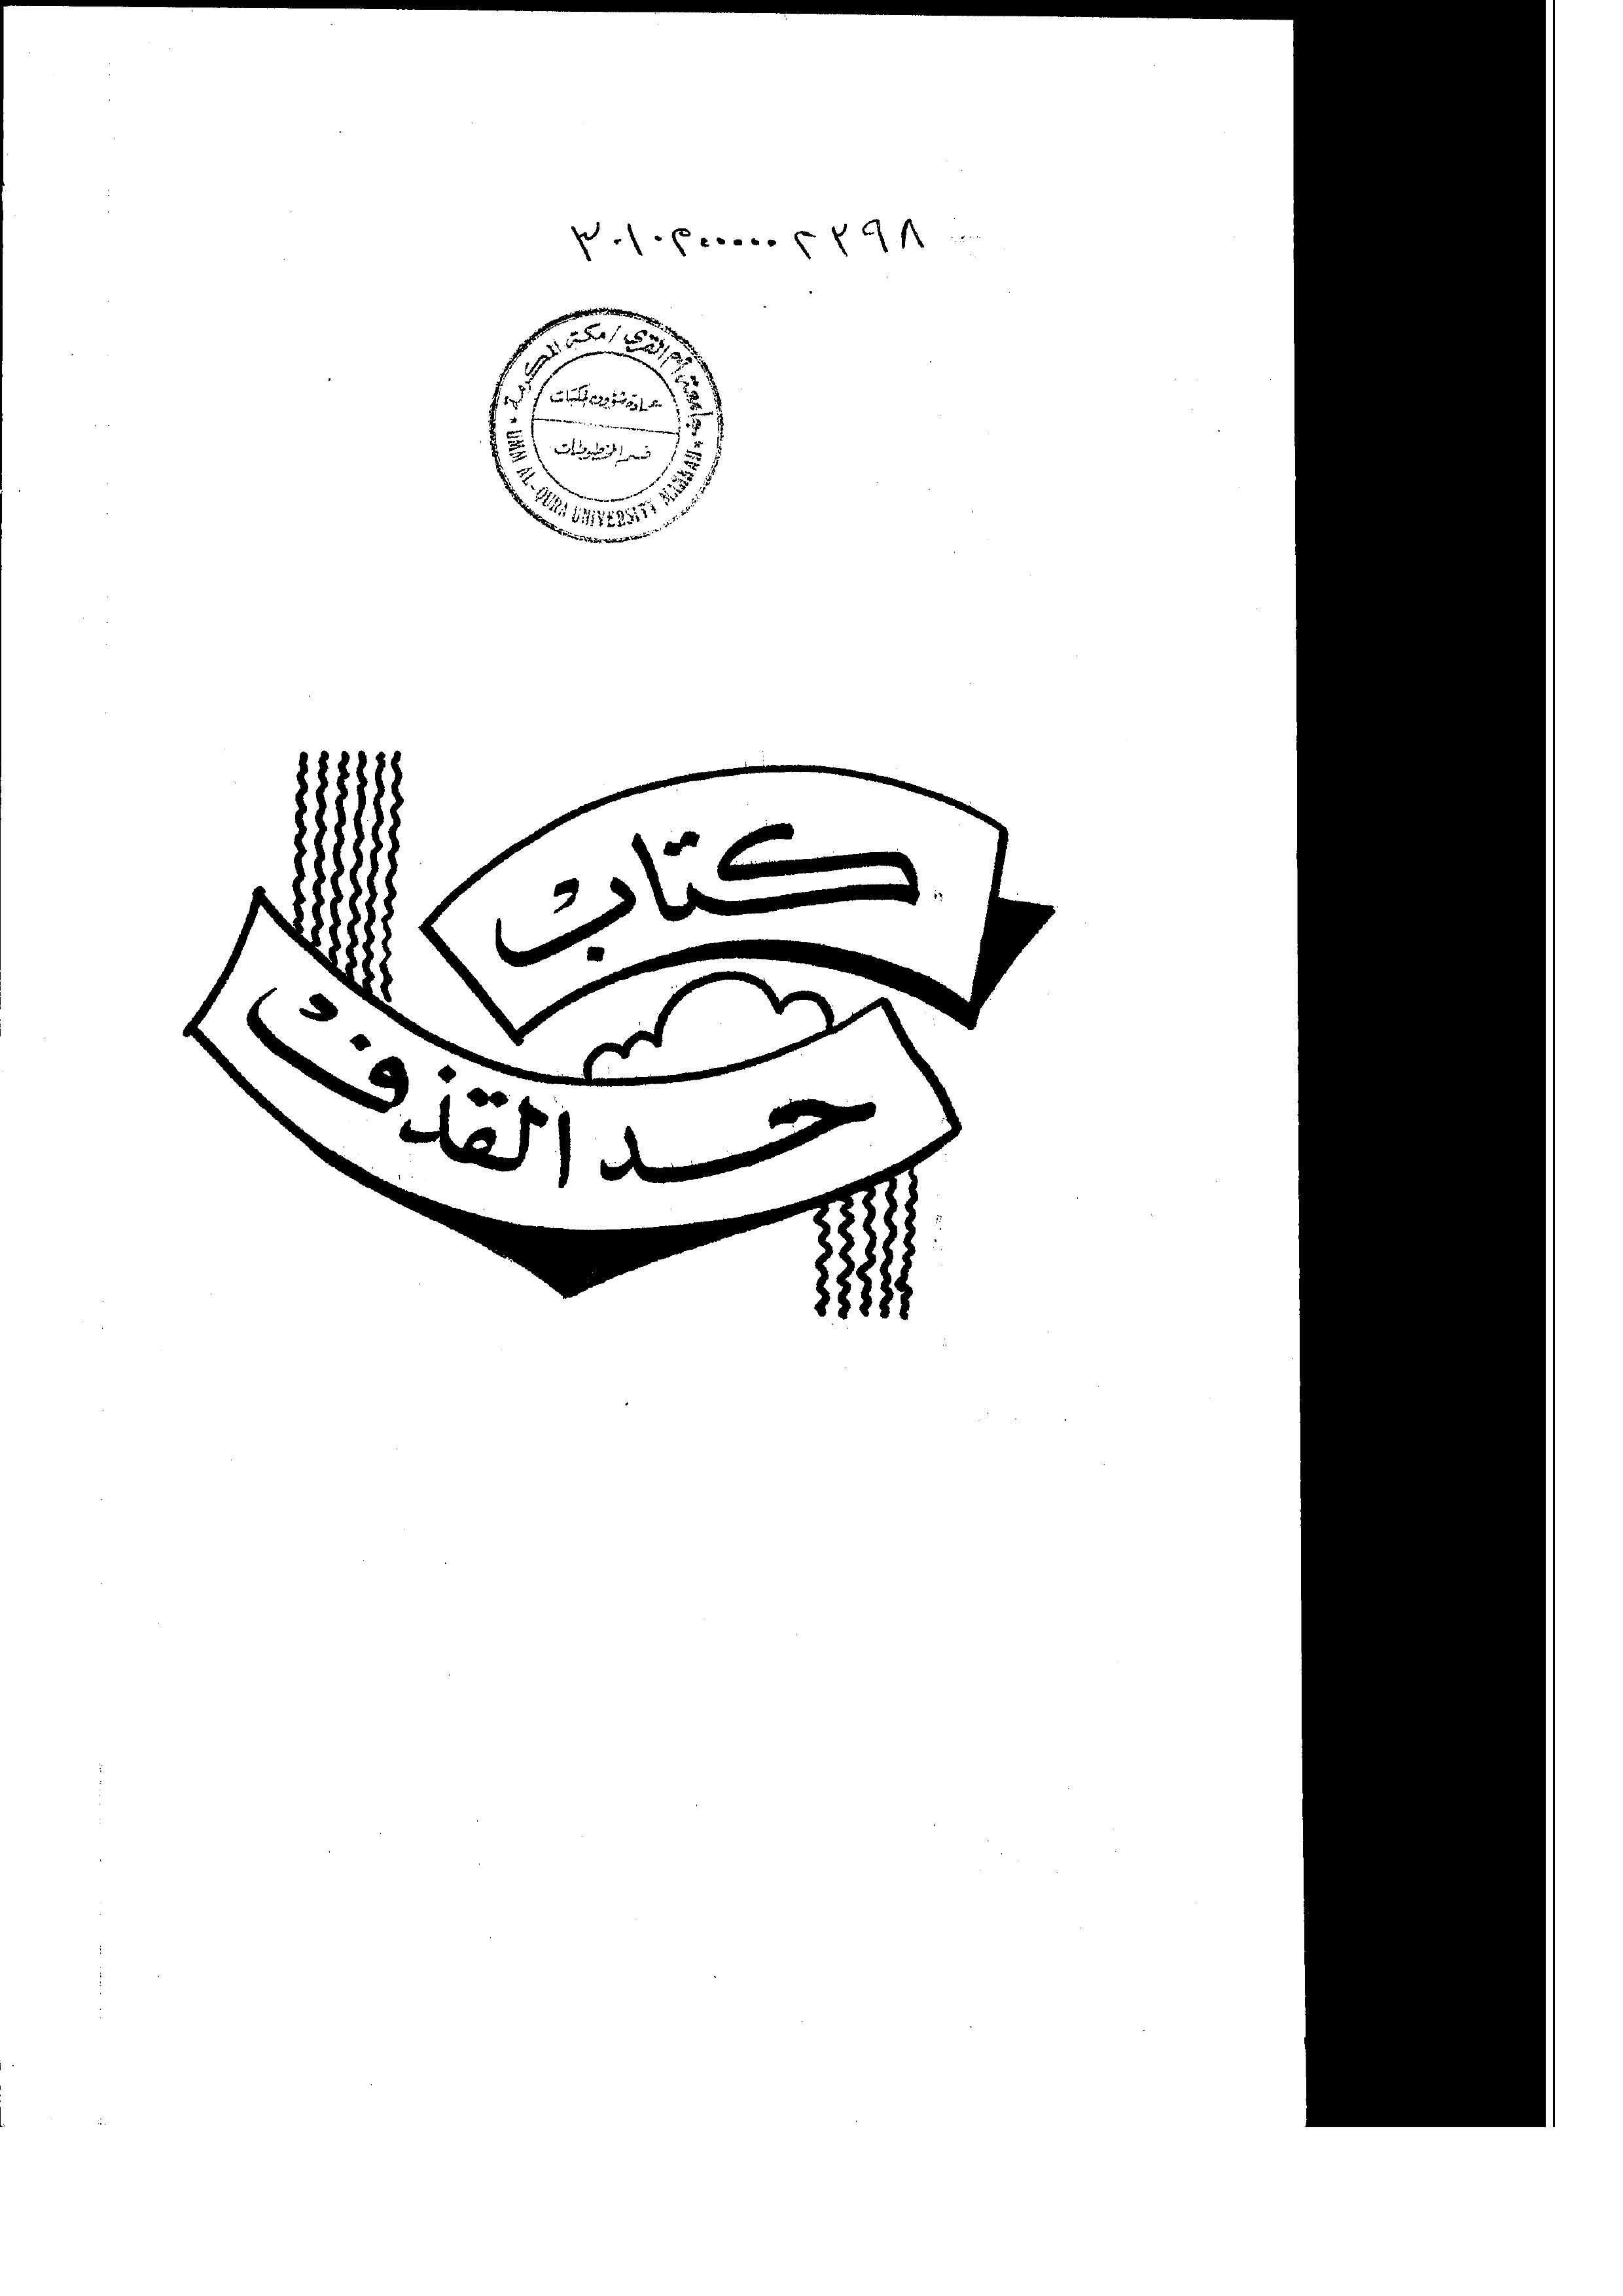 ٣٠١٠٢٠٠٠٠٠٢٢٩٨
جامعة أم القرى / مكة المكرمة
عمادة شؤون المكتبات
قسم المخطوطات
UMM AL-QURA UNIVERSITY MAKKAH
كتاب
حد القذف